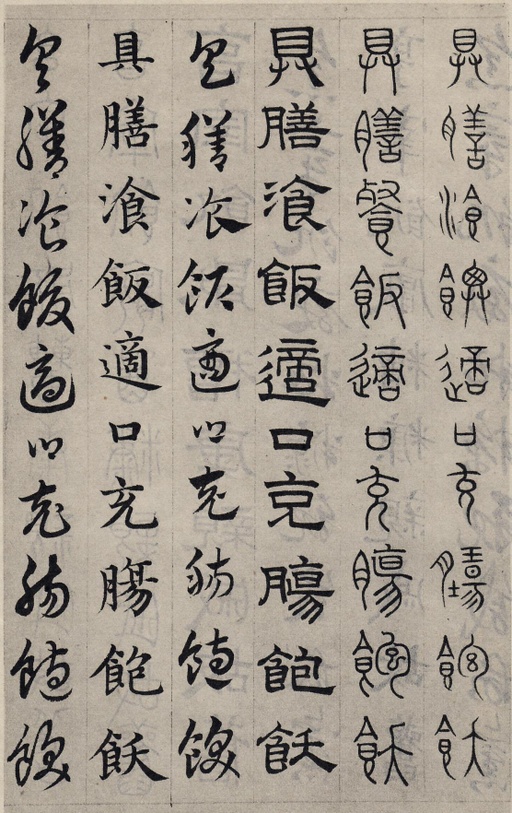 具膳湌飯適口充腸飽飫
具膳餐飯適口充膓飽飫
具膳湌飯適口充膓飽飫
具膳湌飯適口充腸飽飫
具膳湌飯適口充膓飽飫
具膳湌飯適口充腸飽飫